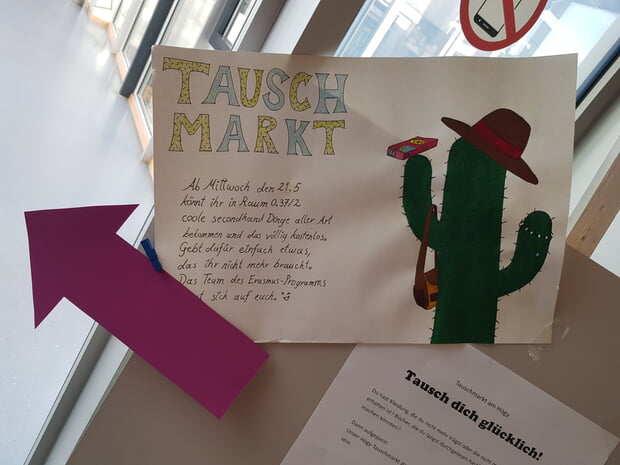 TAUSCH
MARKT
Ab Mittwoch den 21.5
könnt ihr in Raum 0.37/2
coole secondhand Dinge aller Art
bekommen und das völlig kostenlos.
Gebt dafür einfach etwas,
das ihr nicht mehr braucht.
Das Team des Erasmus-Programms
sich auf euch.
Tauschmarkt am Hogy
Tausch dich glücklich!
Du hast Kleidung, die du nicht mehr trägst oder die nicht m
erhalten ist? Bücher, die du längst durchgelesen ha
machen könnten?
Dann aufgepasst:
Unser Hogy-Tauschmarkt
sein